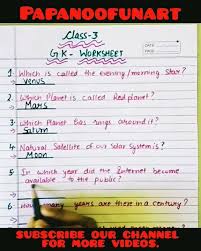 PAPANOOFUNART
Class-3
DATE
PAGE
GK- WORKSHEET
1. Which is called the evening/morning Star?
Venus
2. Which Planet is called Red planet?
Mars
3. Which Planet has rings around it?
Saturn
4. Natural Satellite of our Solar system is?
Moon
5 In which year did the Internet become
available to the public?
6. How many years are there in a century?
SUBSCRIBE OUR CHANNEL
FOR MORE VIDEOS.